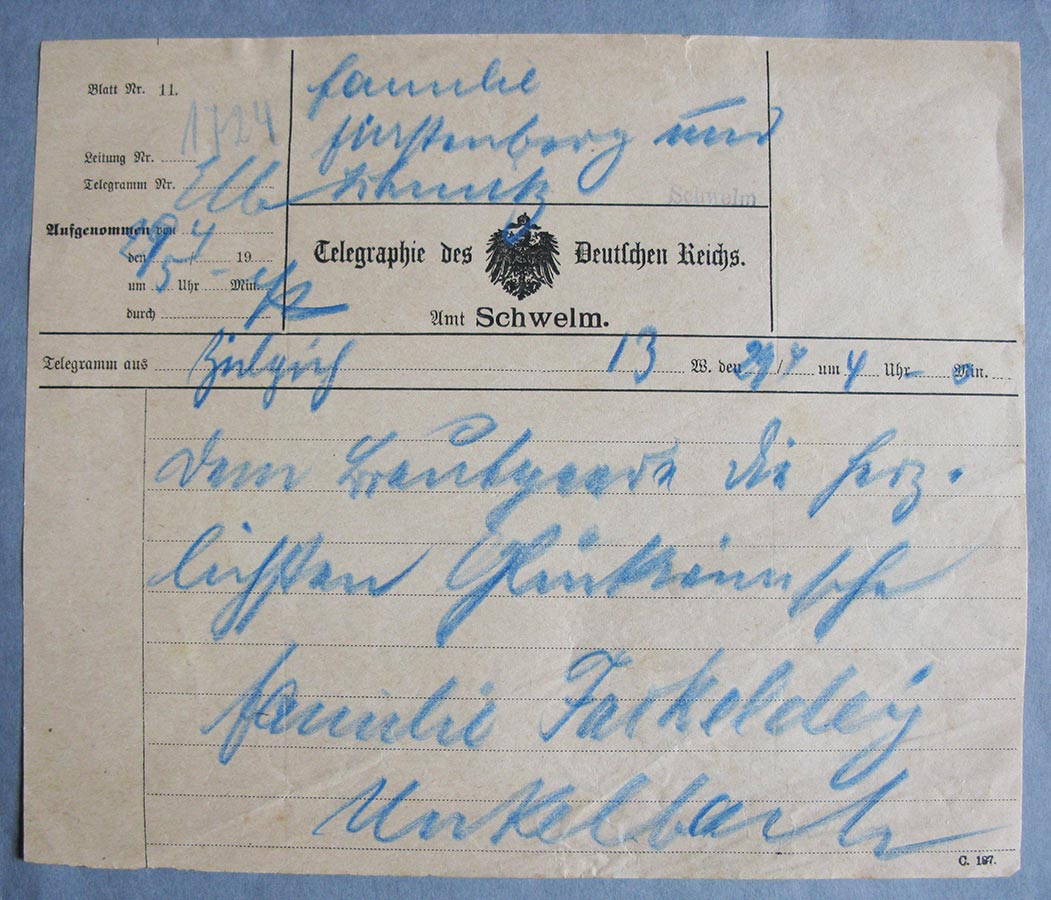 Blatt Nr. 11.
1724
Leitung Nr.
Telegramm Nr.
Elb
Aufgenommen von
den 29/4 19
um 5 Uhr - Min.
durch
Familie
Fürstenberg und
Schmitz
Schwelm
Telegraphie des Deutschen Reichs.
Amt Schwelm.
Telegramm aus Zülpich 13 W. den 29/4 um 4 Uhr - Min.
Dem Brautpaare die herz-
lichsten Glückwünsche
Familie Fackeldey
Unkelbach
C. 187.